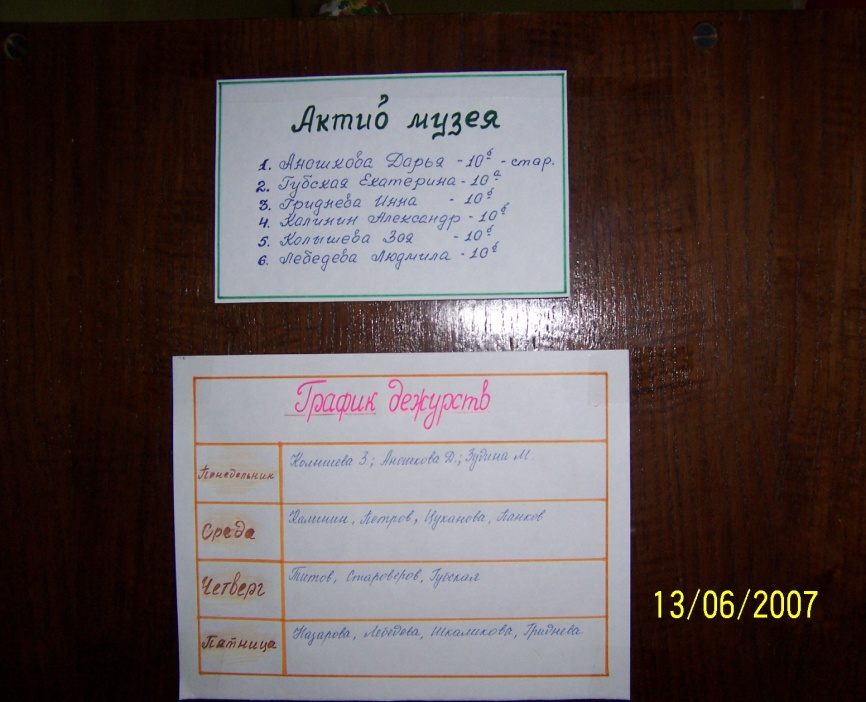 Актив музея
1. Аношкова Дарья - 10б - стар.
2. Губская Екатерина - 10а
3. Гриднева Инна - 10б
4. Калинин Александр - 10б
5. Колышева Зоя - 10б
6. Лебедева Людмила - 10б
График дежурств
Понедельник Колышева З.; Аношкова Д.; Зудина М.
Среда Калинин, Петров, Цуканова, Панков
Четверг Титов, Староверов, Губская
Пятница Назарова, Лебедева, Шкаликова, Гриднева
13/06/2007